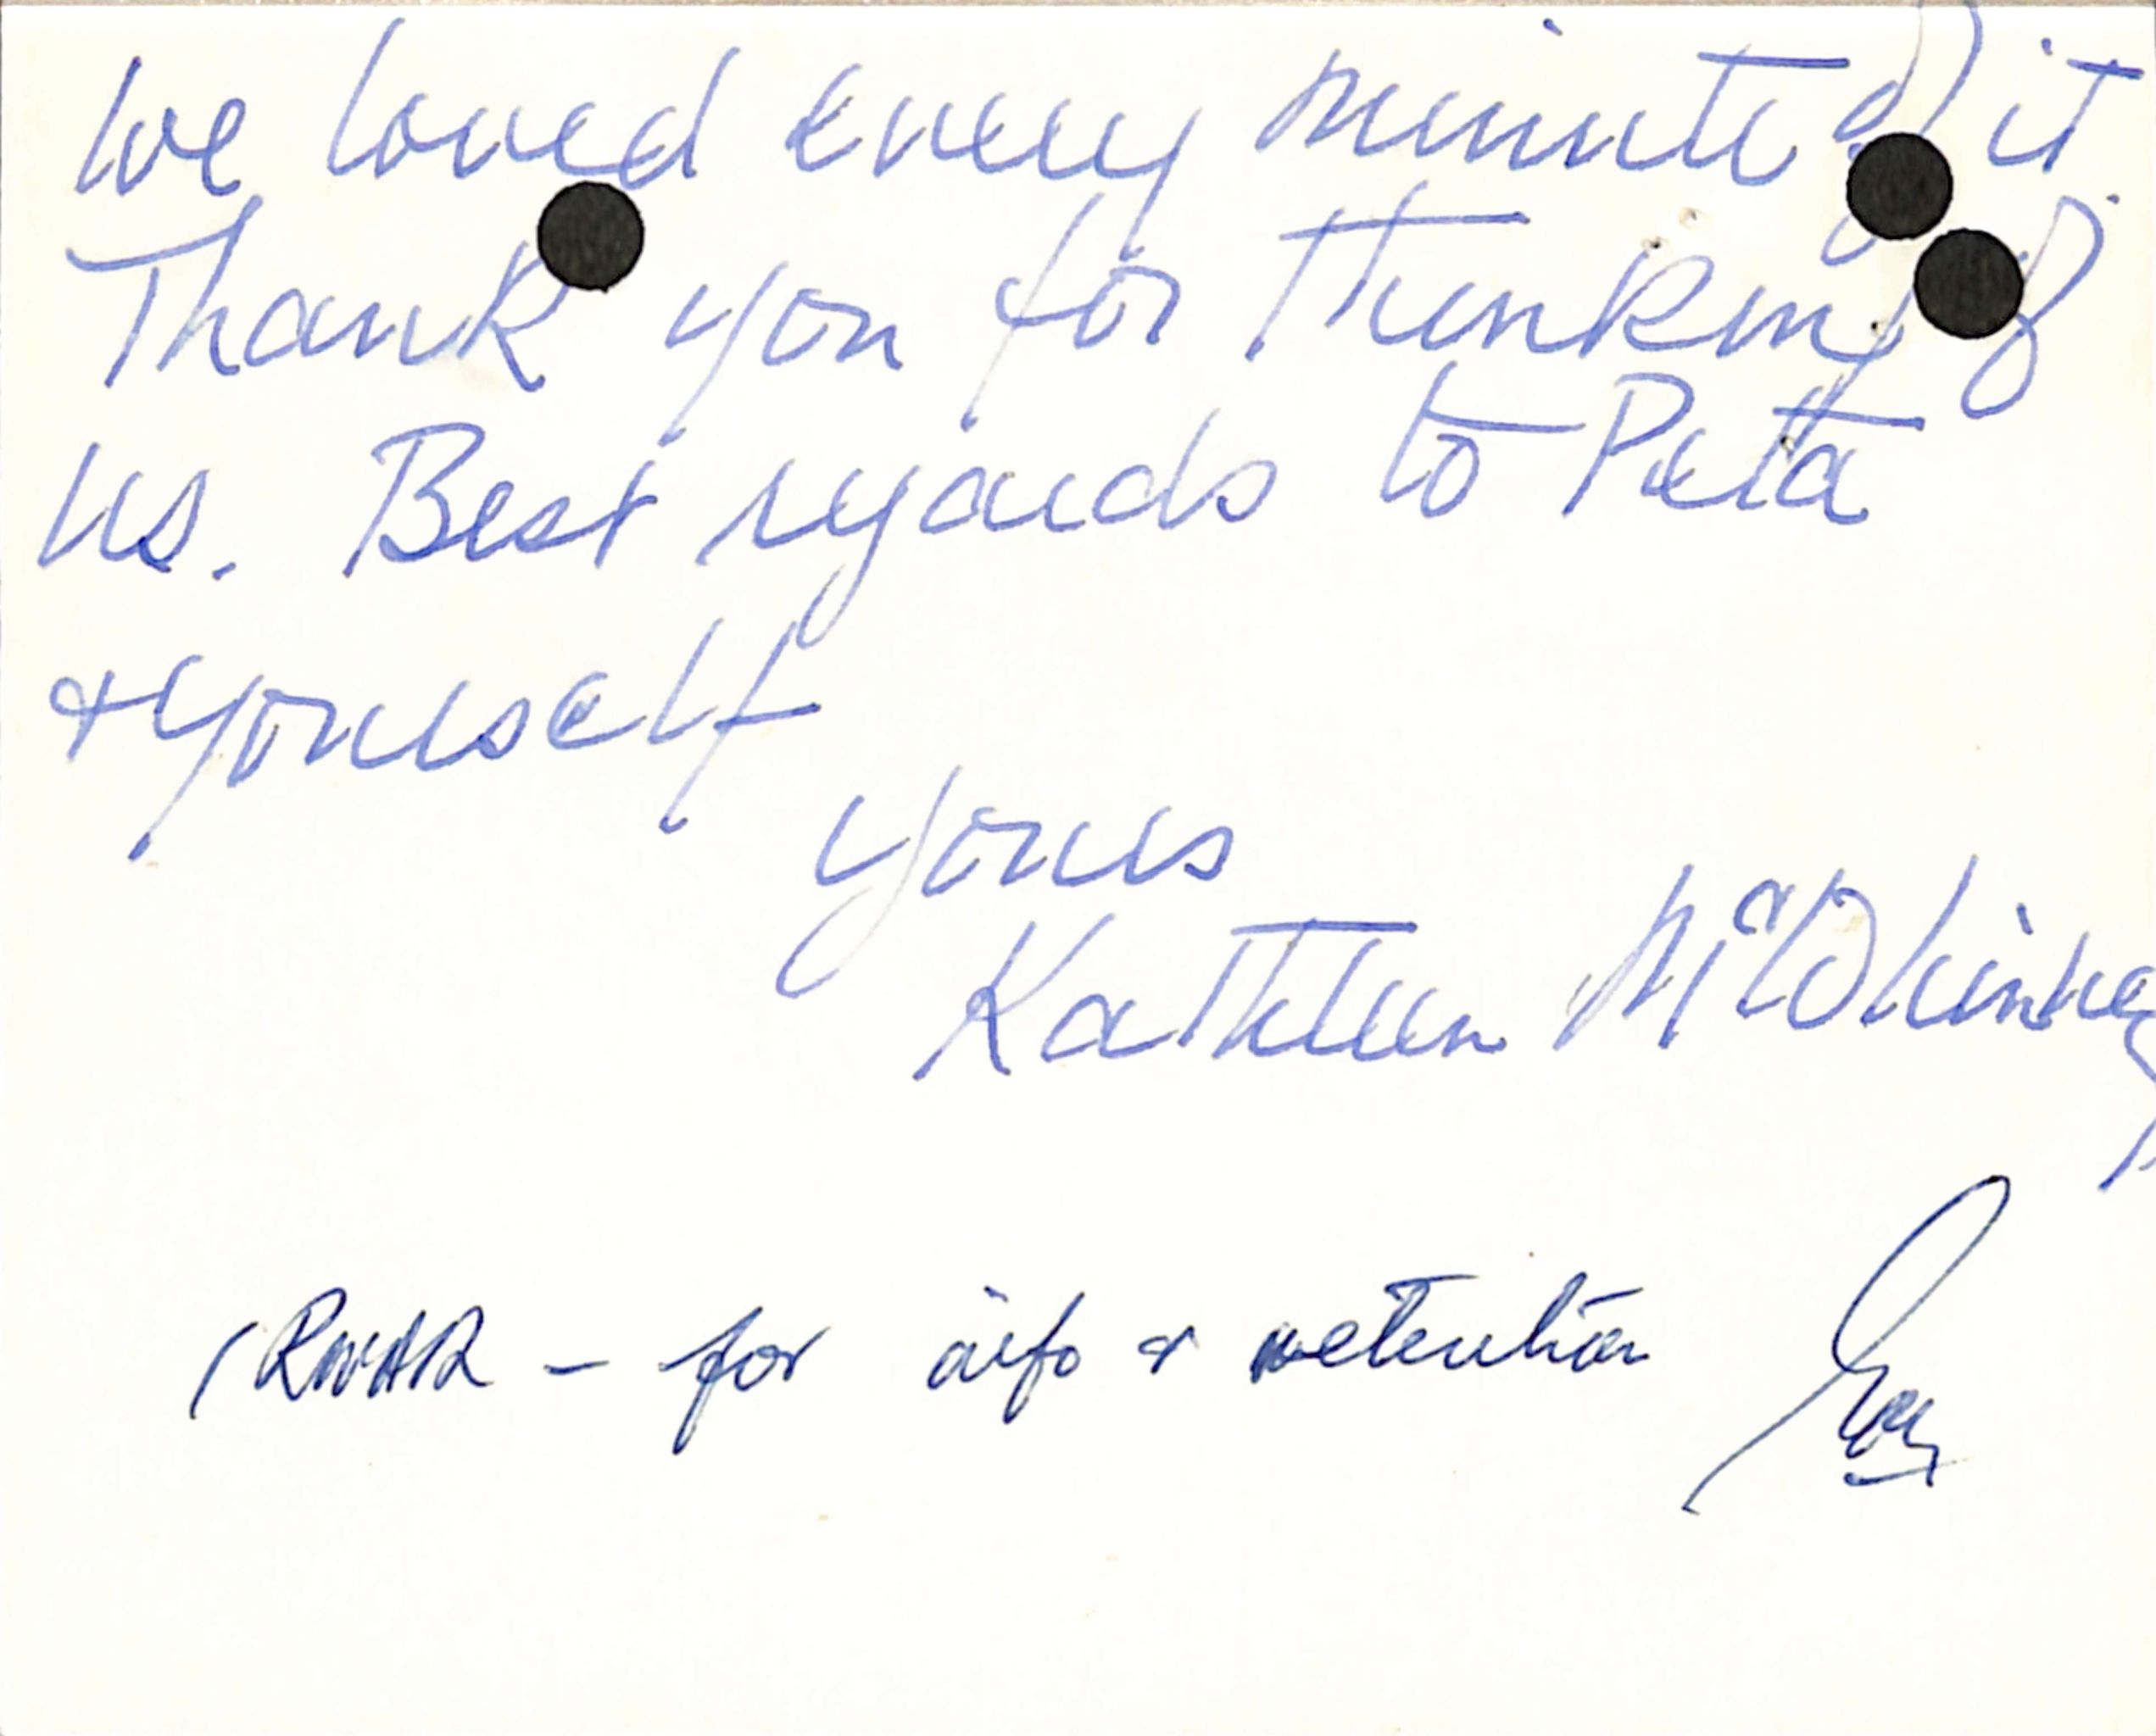 We loved every minute of it.
Thank you for thinking of
us. Best regards to Peta
& yourself
Yours
Kathleen McWhinney
- for info & retention